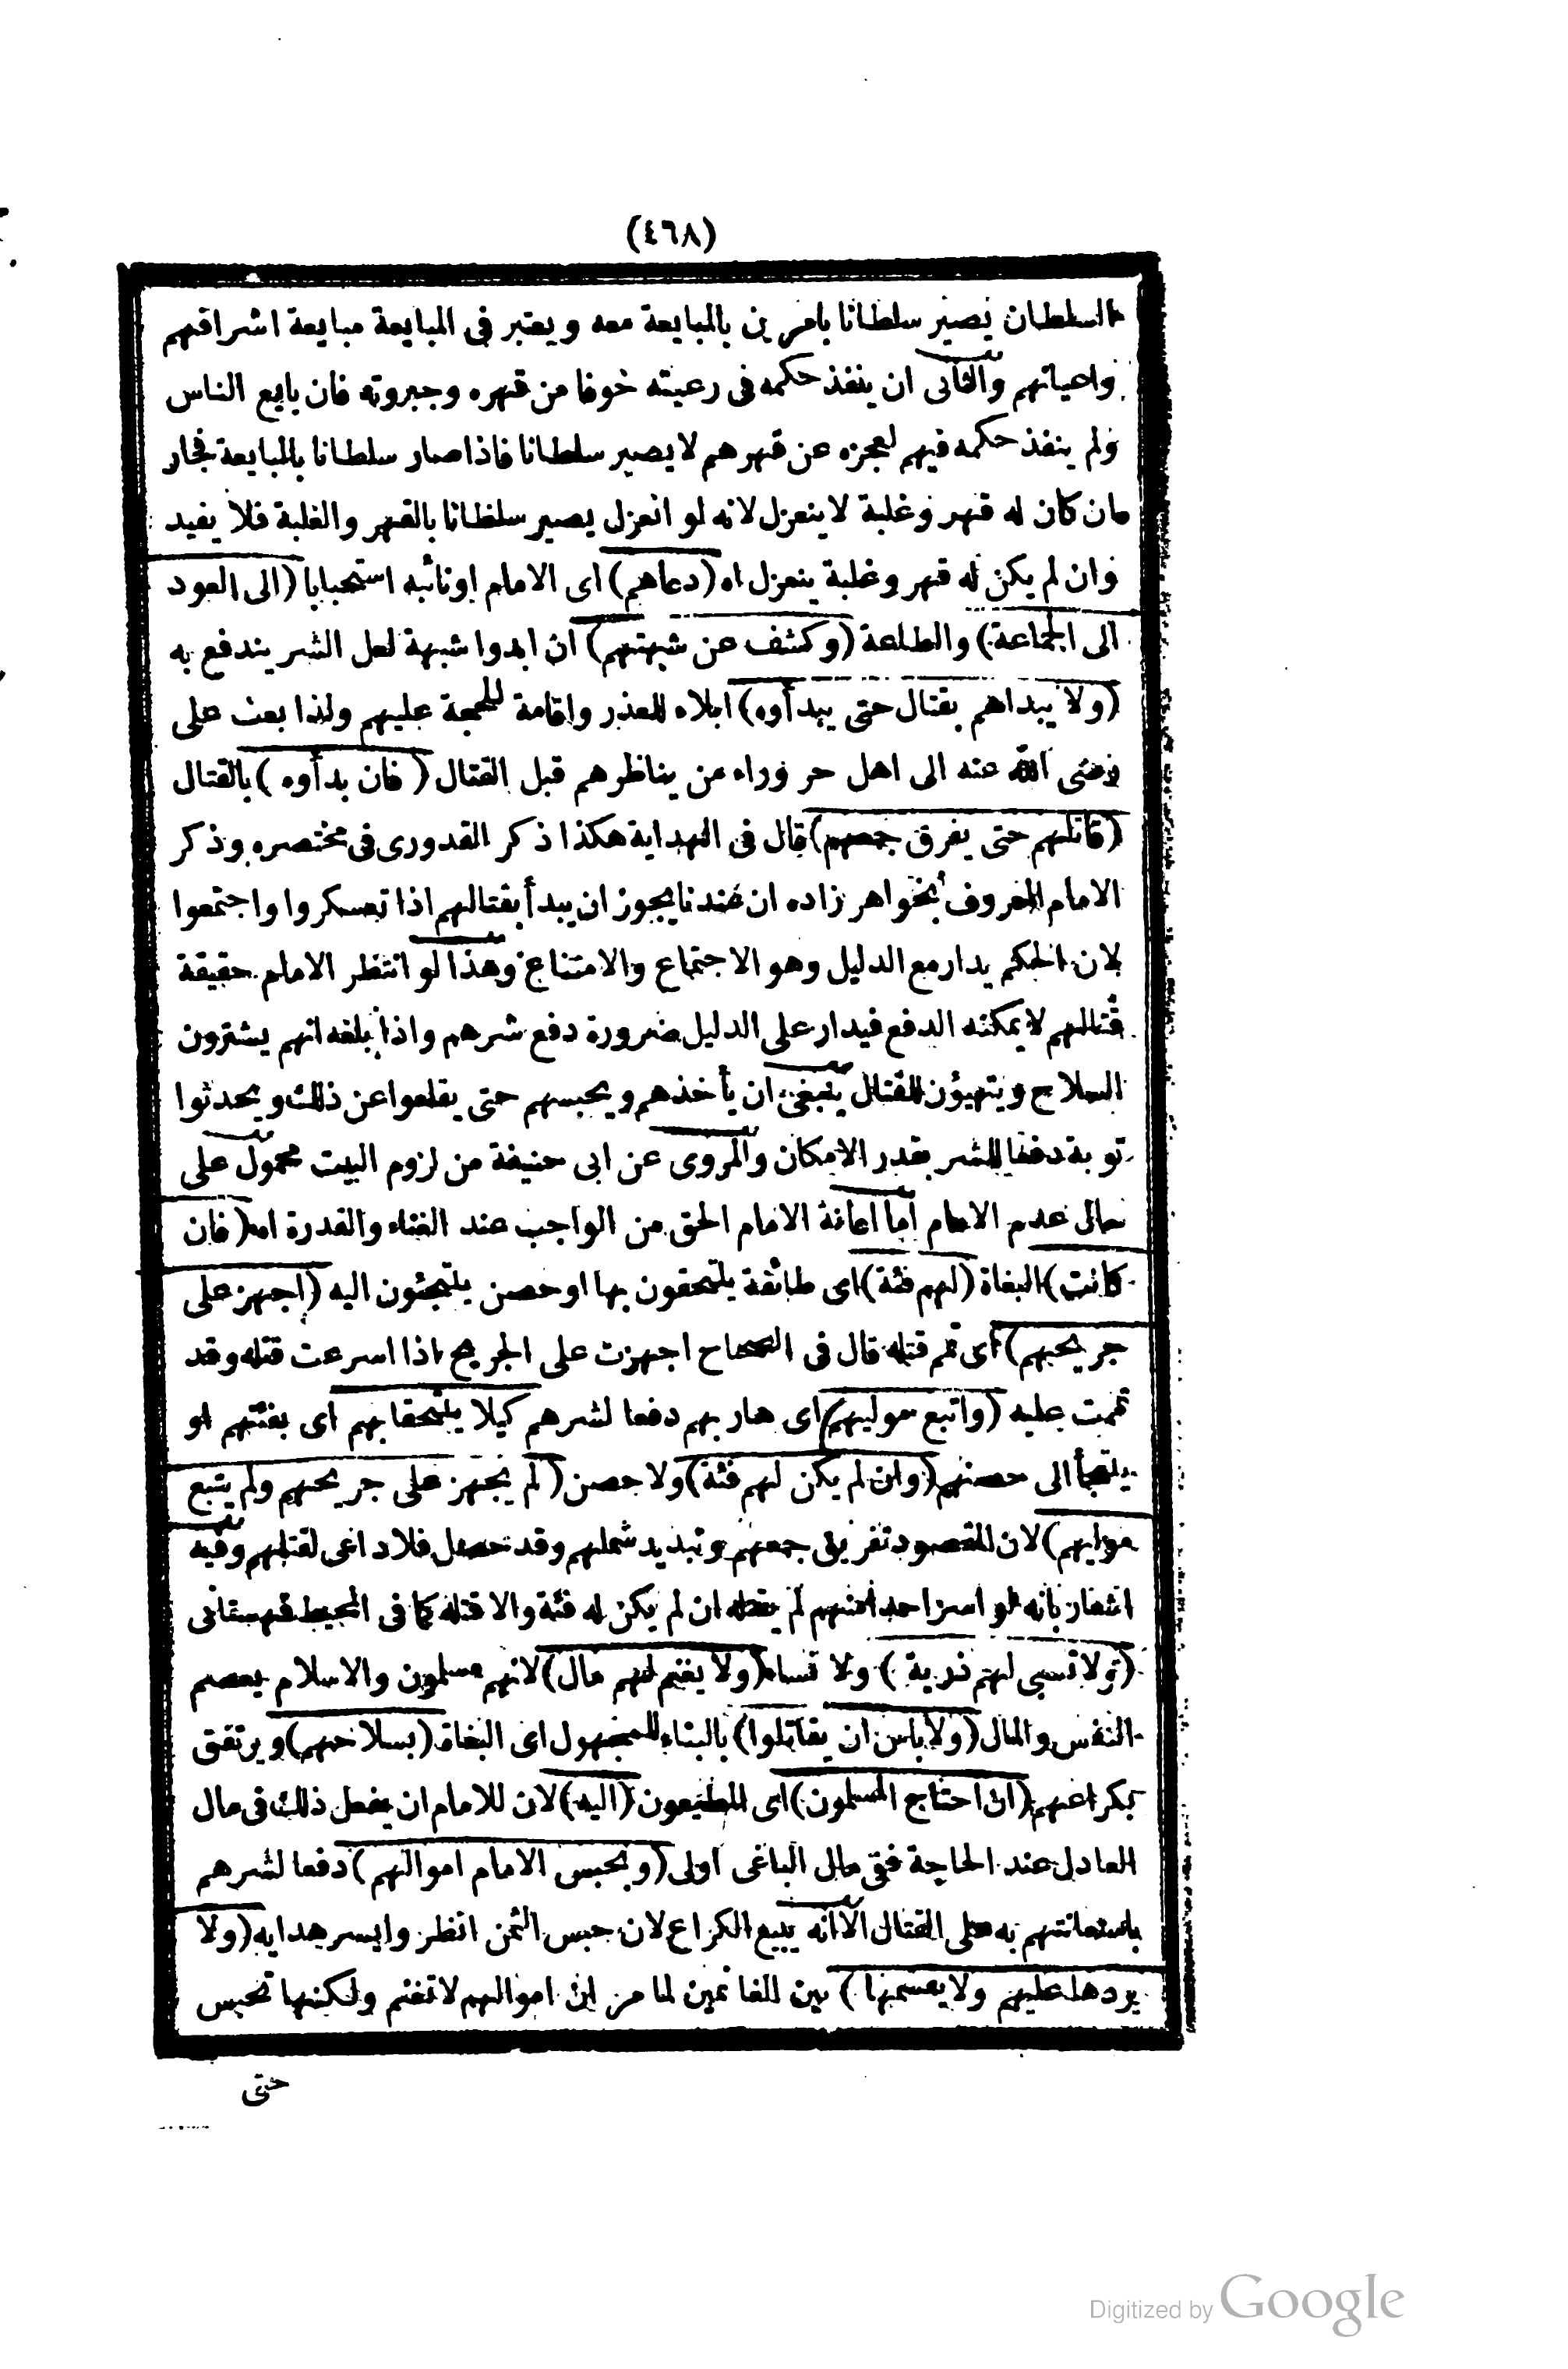 (٤٦٨)
السلطان يصير سلطانا بامرين بالمبايعة معه ويعتبر فى المبايعة مبايعة اشرافهم
واعيانهم والثانى ان ينفذ حكمه فى رعيته خوفا من قهره وجبروته فان بايع الناس
ولم ينفذ حكمه فيهم لعجزه عن قهرهم لا يصير سلطانا فاذا صار سلطانا بالمبايعة فجار
ان كان له قهر وغلبة لا ينعزل لانه لو انعزل يصير سلطانا بالقهر والغلبة فلا يفيد
وان لم يكن له قهر وغلبة ينعزل اه (دعاهم) اى الامام او نائبه استحبابا (الى العود
الى الجماعة) والطاعة (وكشف عن شبهتهم) ان ابدوا شبهة لعل الشر يندفع به
(ولا يبداهم بقتال حتى يبدأوه) ابلاء للعذر واقامة للحجة عليهم ولذا بعث على
رضى الله عنه الى اهل حروراء من يناظرهم قبل القتال (فان بدأوه) بالقتال
(قاتلهم حتى يفرق جمعهم) قال فى الهداية هكذا ذكر القدورى فى مختصره وذكر
الامام المعروف بخواهر زاده ان عندنا يجوز ان يبدأ بقتالهم اذا تعسكروا واجتمعوا
لان الحكم يدار مع الدليل وهو الاجتماع والامتناع وهذا لو انتظر الامام حقيقة
قتالهم لا يمكنه الدفع فيدار على الدليل ضرورة دفع شرهم واذا بلغه انهم يشترون
السلاح ويتهيؤن للقتال ينبغى ان يأخذهم ويحبسهم حتى يقلعوا عن ذلك ويحدثوا
توبة دفعا للشر بقدر الامكان والمروى عن ابى حنيفة من لزوم البيت محمول على
حال عدم الامام اما اعانة الامام الحق من الواجب عند الغناء والقدرة اه (فان
كانت) البغاة (لهم فئة) اى طائفة يلتحقون بها او حصن يلتجئون اليه (اجهز على
جريحهم) اى تم قتله قال فى الصحاح اجهزت على الجريح اذا اسرعت قتله وقد
تممت عليه (واتبع موليهم) اى هاربهم دفعا لشرهم كيلا يلتحقا بهم اى بفئتهم او
يلتجأ الى حصنهم (وان لم يكن لهم فئة) ولا حصن (لم يجهز على جريحهم ولم يتبع
موليهم) لان المقصود تفريق جمعهم وتبديد شملهم وقد حصل فلا داعى لقتلهم وفيه
اشعار بانه لو اسر احد منهم لم يقتله ان لم يكن له فئة والا قتله كما فى المحيط قهستانى
(ولا تسبى لهم ذرية) ولا نساء (ولا يغنم لهم مال) لانهم مسلمون والاسلام يعصم
النفس والمال (ولا باس ان يقاتلوا) بالبناء للمجهول اى البغاة (بسلاحهم) ويرتفق
بكراعهم (ان احتاج المسلمون) اى المطيعون (اليه) لان للامام ان يفعل ذلك فى مال
العادل عند الحاجة ففى مال الباغى اولى (ويحبس الامام اموالهم) دفعا لشرهم
باستعانتهم به على القتال الا انه يبيع الكراع لان حبس الثمن انظر وايسر هدايه (ولا
يردها عليهم ولا يقسمها) بين الغانمين لما مر ان اموالهم لا تغنم ولكنها تحبس
حتى
Digitized by Google